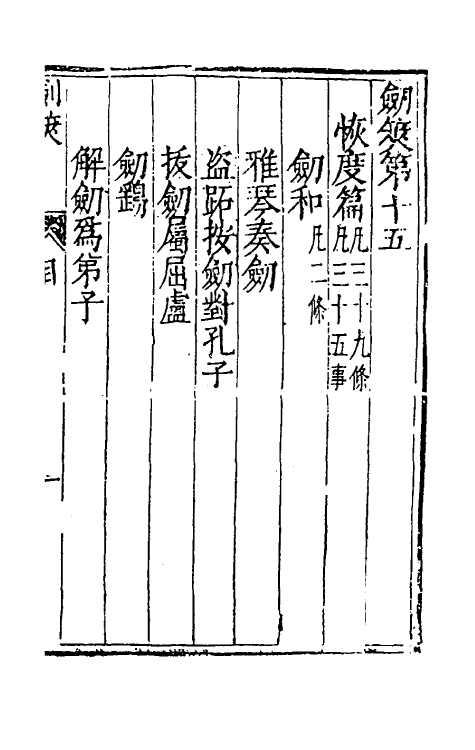 劒筴第十五
恢度篇凡三十九條
凡三十五事
劒和凡二條
雅琴奏劒
盜跖按劒對孔子
拔劒屬屈盧
劒鸐
解劒爲弟子
目
一